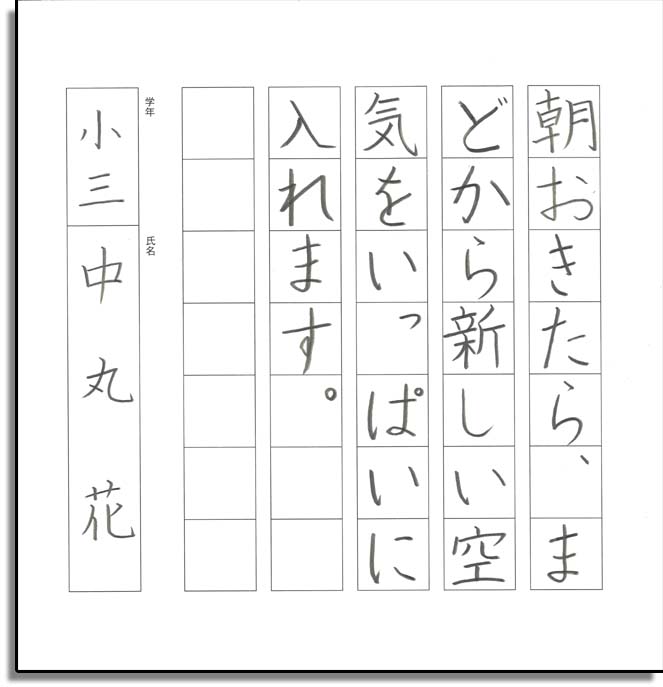 朝おきたら、ま
どから新しい空
気をいっぱいに
入れます。
学年
小三
氏名
中丸花